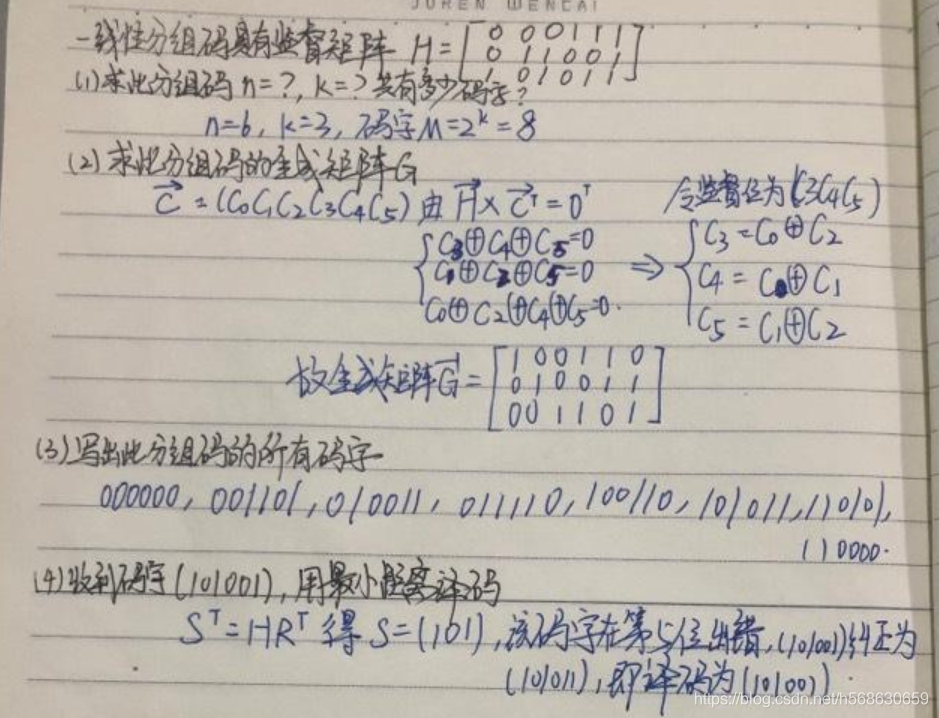 JUREN WENCAI
一线性分组码具有监督矩阵 H=[0 0 0 1 1 1
0 1 1 0 0 1
1 0 1 0 1 1]
(1)求此分组码n=?, k=? 共有多少码字?
n=6, k=3, 码字M=2^k=8
(2)求此分组码的生成矩阵G
C=(C0C1C2C3C4C5) 由 H×C^T=0^T 令监督位为(C3C4C5)
{C3⊕C4⊕C5=0
C1⊕C2⊕C5=0
C0⊕C2⊕C4⊕C5=0.
⇒ {C3=C0⊕C2
C4=C0⊕C1
C5=C1⊕C2
故生成矩阵G=[1 0 0 1 1 0
0 1 0 0 1 1
0 0 1 1 0 1]
(3)写出此分组码的所有码字
000000, 001101, 010011, 011110, 100110, 101011, 110101,
110000.
(4)收到码字(101001), 用最小距离译码
S^T=HR^T 得 S=(101), 该码字在第5位出错, (101001)纠正为
(101011), 即译码为(101001)
https://blog.csdn.net/h568630659